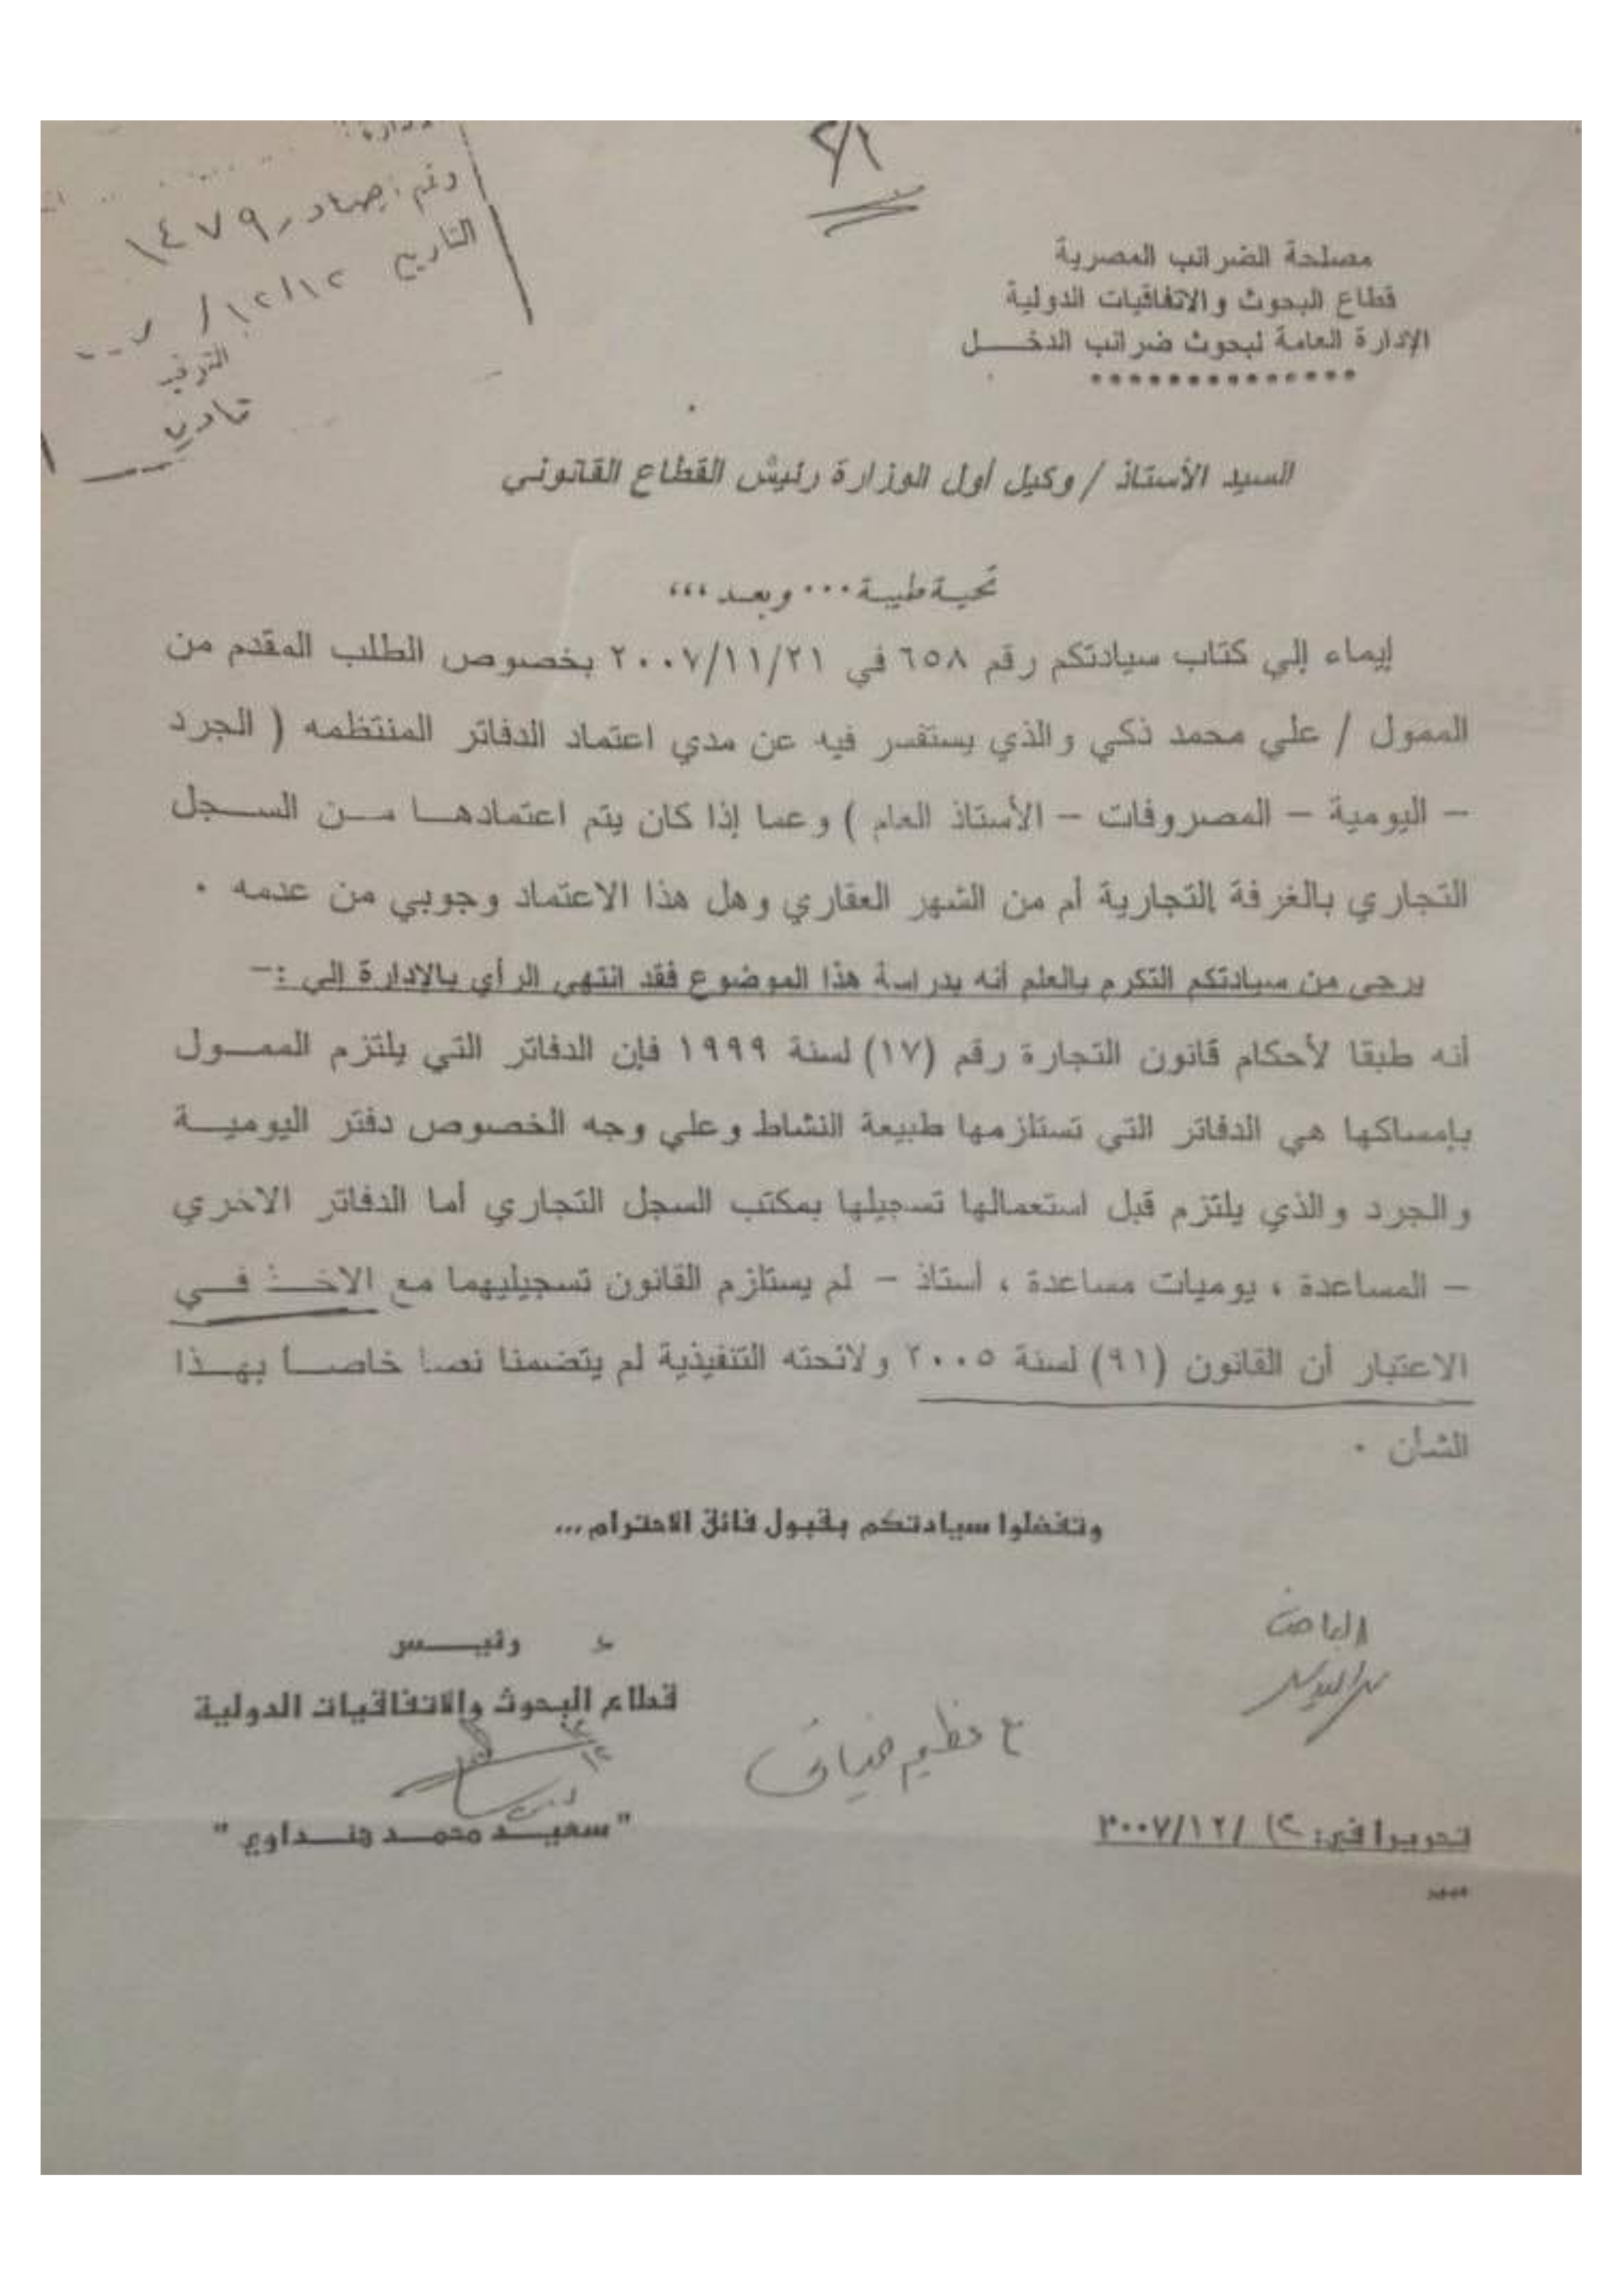 رقم: صادر ١٤٧٩
التاريخ ١٢/١٢/
مصلحة الضرائب المصرية
قطاع البحوث والاتفاقيات الدولية
الإدارة العامة لبحوث ضرائب الدخـــل
السيد الأستاذ / وكيل أول الوزارة رئيس القطاع القانوني
تحيـة طيبـة ٠٠٠ وبعـد ،،،
إيماء إلي كتاب سيادتكم رقم ٦٥٨ في ٢٠٠٧/١١/٢١ بخصوص الطلب المقدم من
الممول / علي محمد ذكي والذي يستفسر فيه عن مدي اعتماد الدفاتر المنتظمه ( الجرد
– اليومية – المصروفات – الأستاذ العام ) وعما إذا كان يتم اعتمادهـــا مـــن الســـجل
التجاري بالغرفة التجارية أم من الشهر العقاري وهل هذا الاعتماد وجوبي من عدمه ٠
يرجى من سيادتكم التكرم بالعلم أنه بدراسة هذا الموضوع فقد انتهى الرأي بالإدارة إلي :–
أنه طبقا لأحكام قانون التجارة رقم (١٧) لسنة ١٩٩٩ فإن الدفاتر التي يلتزم الممـــول
بإمساكها هي الدفاتر التي تستلزمها طبيعة النشاط وعلي وجه الخصوص دفتر اليوميـــة
والجرد والذي يلتزم قبل استعمالها تسجيلها بمكتب السجل التجاري أما الدفاتر الاخري
– المساعدة ، يوميات مساعدة ، أستاذ – لم يستلزم القانون تسجيليهما مع الاخـــذ فـــي
الاعتبار أن القانون (٩١) لسنة ٢٠٠٥ ولائحته التنفيذية لم يتضمنا نصا خاصـــا بهـــذا
الشأن ٠
وتفضلوا سيادتكم بقبول فائق الاحترام...
الباحث
رئيـــــس
قطاع البحوث والاتفاقيات الدولية
" سعيـــد محمـــد هنـــداوي "
تحريرا في: ١٢/ ٢٠٠٧/١٢